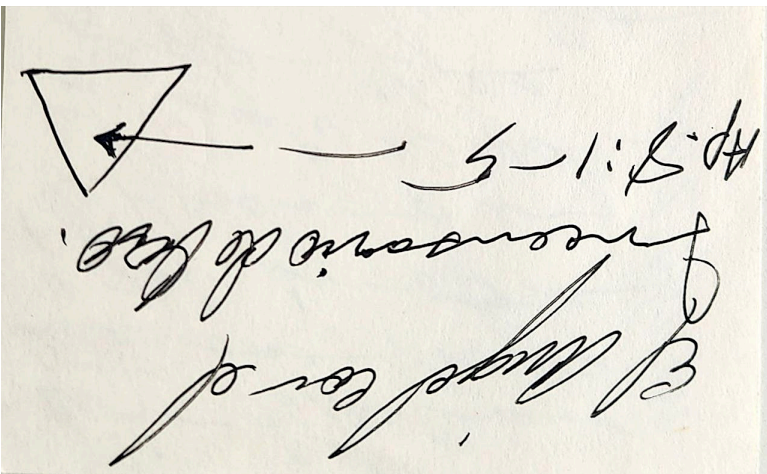 El Angel con el
Incensario de Oro.
Ap. 8:1-5